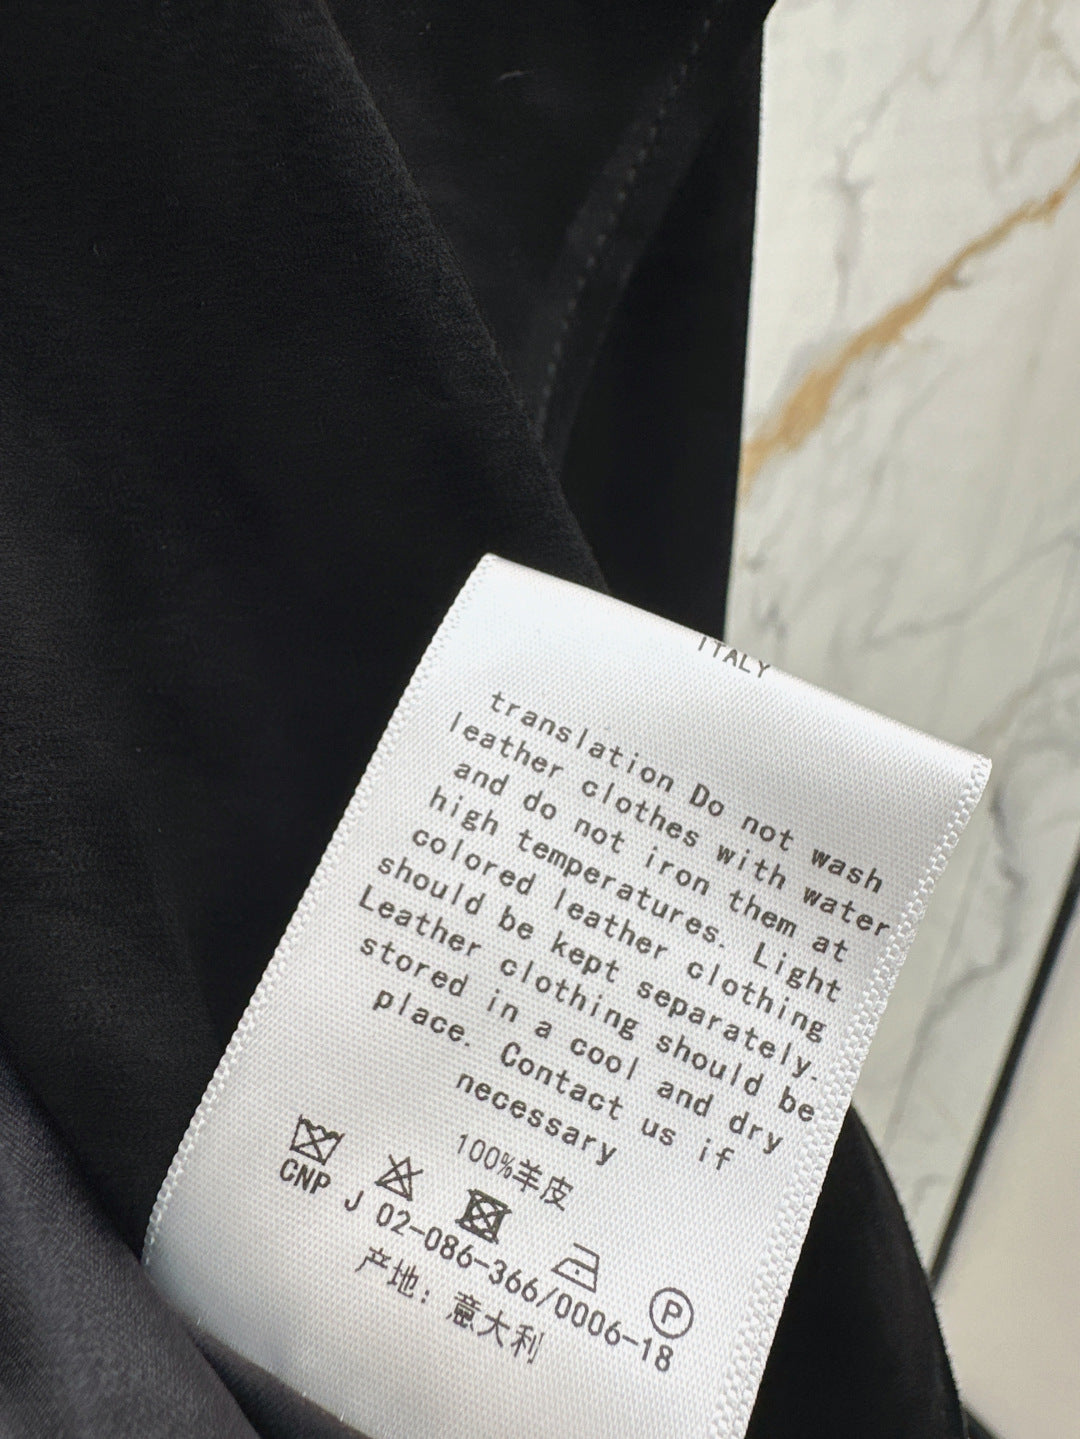 ITALY
translation Do not wash
leather clothes with water
and do not iron them at
high temperatures. Light
colored leather clothing
should be kept separately.
Leather clothing should be
stored in a cool and dry
place. Contact us if
necessary
100%羊皮
P
CNP J 02-086-366/0006-18
产地：意大利